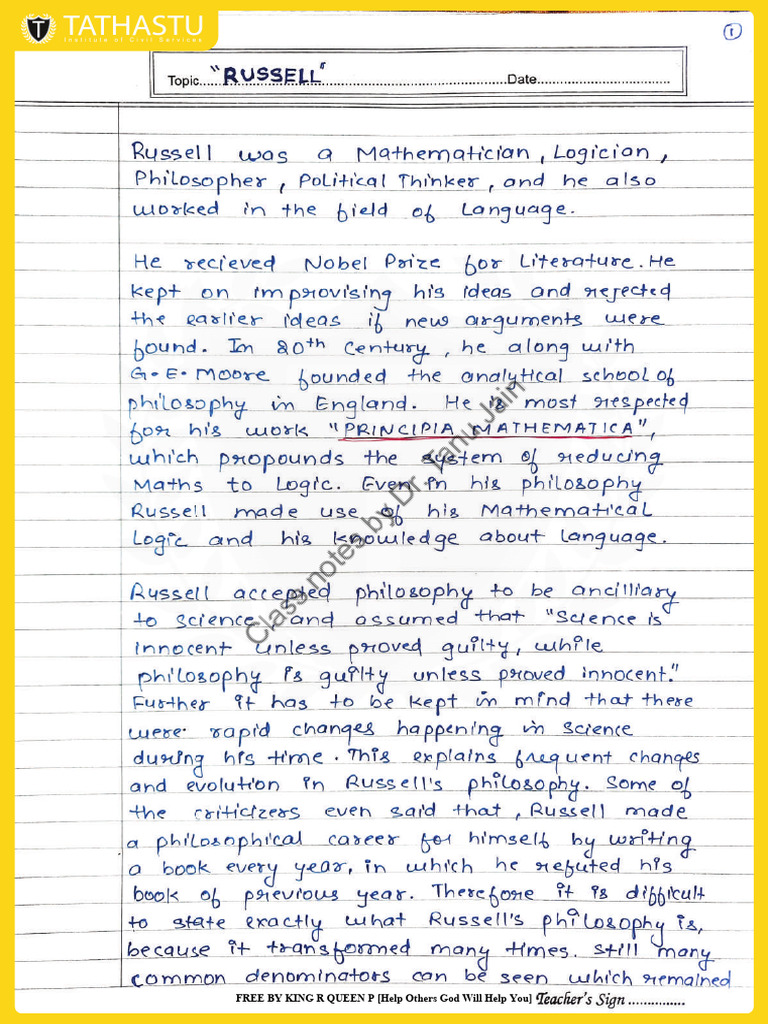 TATHASTU
Institute of Civil Services
1
Topic......"RUSSELL"......Date......
Russell was a Mathematician, Logician,
Philosopher, Political Thinker, and he also
worked in the field of Language.
He recieved Nobel Prize for Literature. He
kept on improvising his ideas and rejected
the earlier ideas if new arguments were
found. In 20th Century, he along with
G.E. Moore founded the analytical school of
philosophy in England. He is most respected
for his work "PRINCIPIA MATHEMATICA",
which propounds the system of reducing
Maths to Logic. Even in his philosophy
Russell made use of his Mathematical
Logic and his knowledge about language.
Class notes by Dr. Tanu Jain
Russell accepted philosophy to be ancilliary
to science, and assumed that "Science is
innocent unless proved guilty, while
philosophy is guilty unless proved innocent."
Further it has to be kept in mind that there
were rapid changes happening in science
during his time. This explains frequent changes
and evolution in Russell's philosophy. Some of
the criticizers even said that, Russell made
a philosophical career for himself by writing
a book every year, in which he refuted his
book of previous year. Therefore it is difficult
to state exactly what Russell's philosophy is,
because it transformed many times. Still many
common denominators can be seen which remained
FREE BY KING R QUEEN P [Help Others God Will Help You] Teacher's Sign ...............